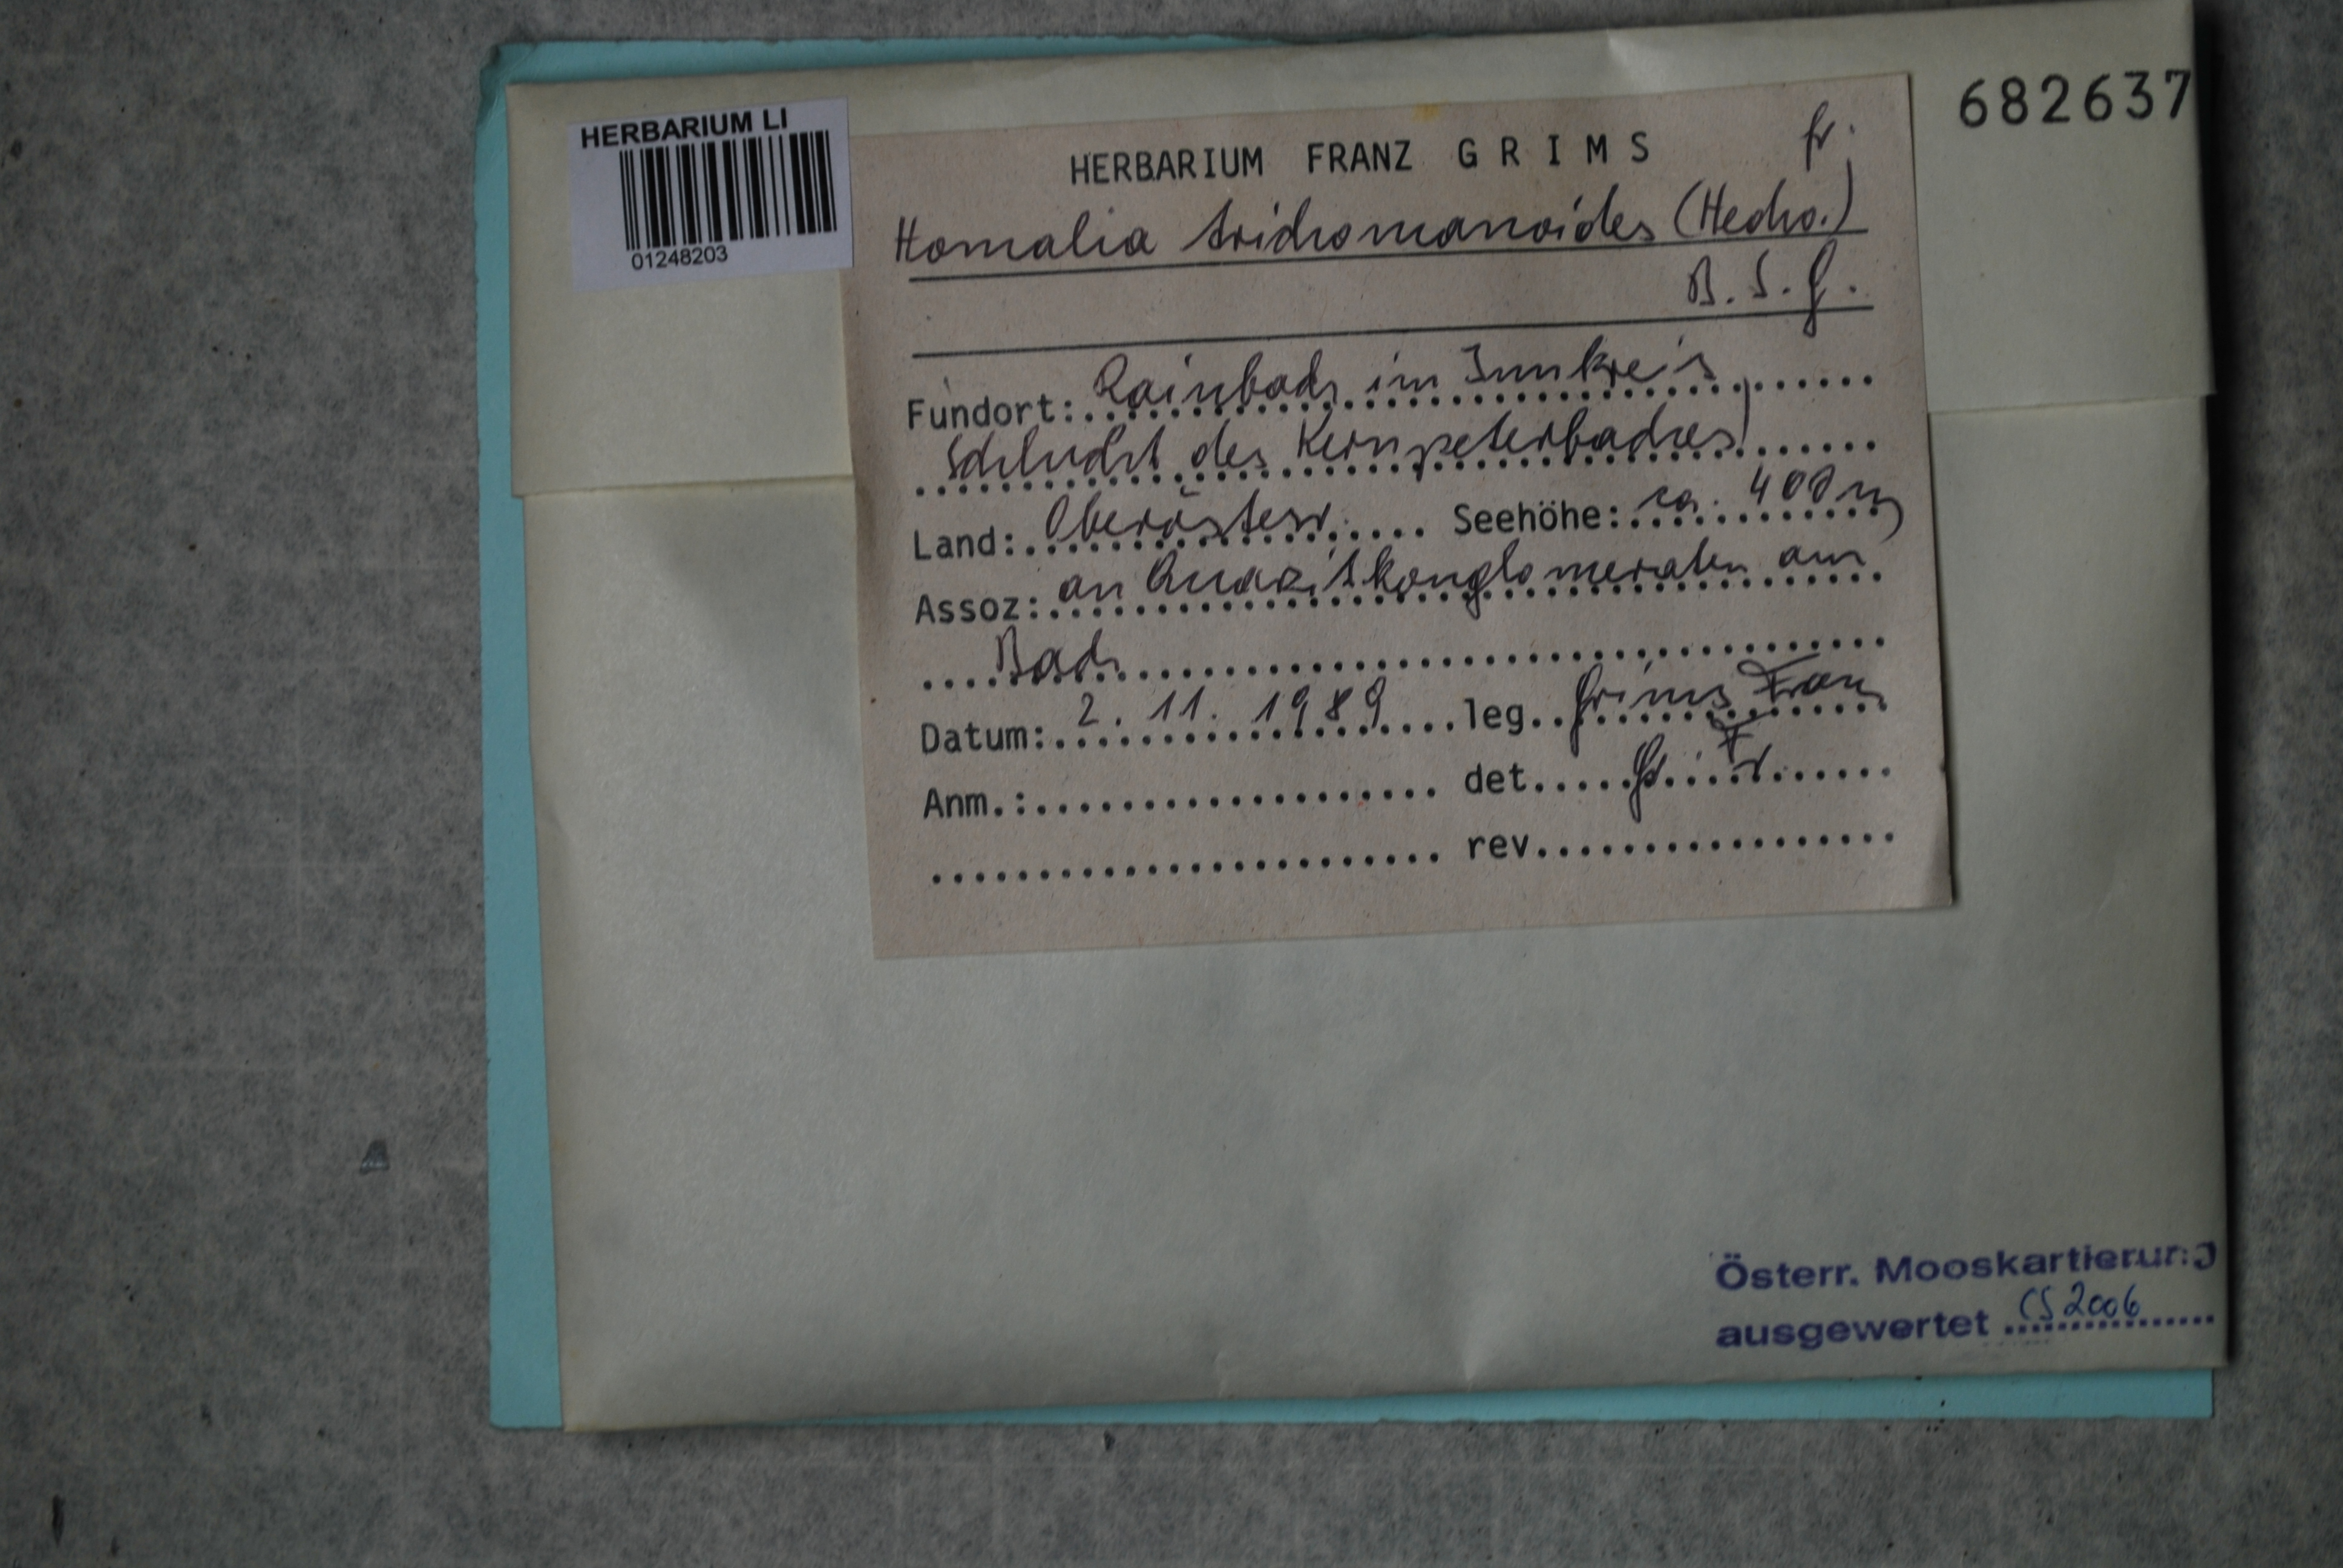 HERBARIUM LI
01248203
682637
HERBARIUM FRANZ GRIMS
fr.
Homalia trichomanoides (Hedw.)
B.S.G.
Fundort: Rainbach im Innkreis,
Schlucht des Kernpeterbaches
Land: Oberösterr. Seehöhe: ca. 400 m
Assoz: an Quarzitkonglomeraten am
Bach
Datum: 2. 11. 1989 leg. Grims Franz
Anm.: det. Gr. Fr.
rev.
Österr. Mooskartierung
ausgewertet CS 2006